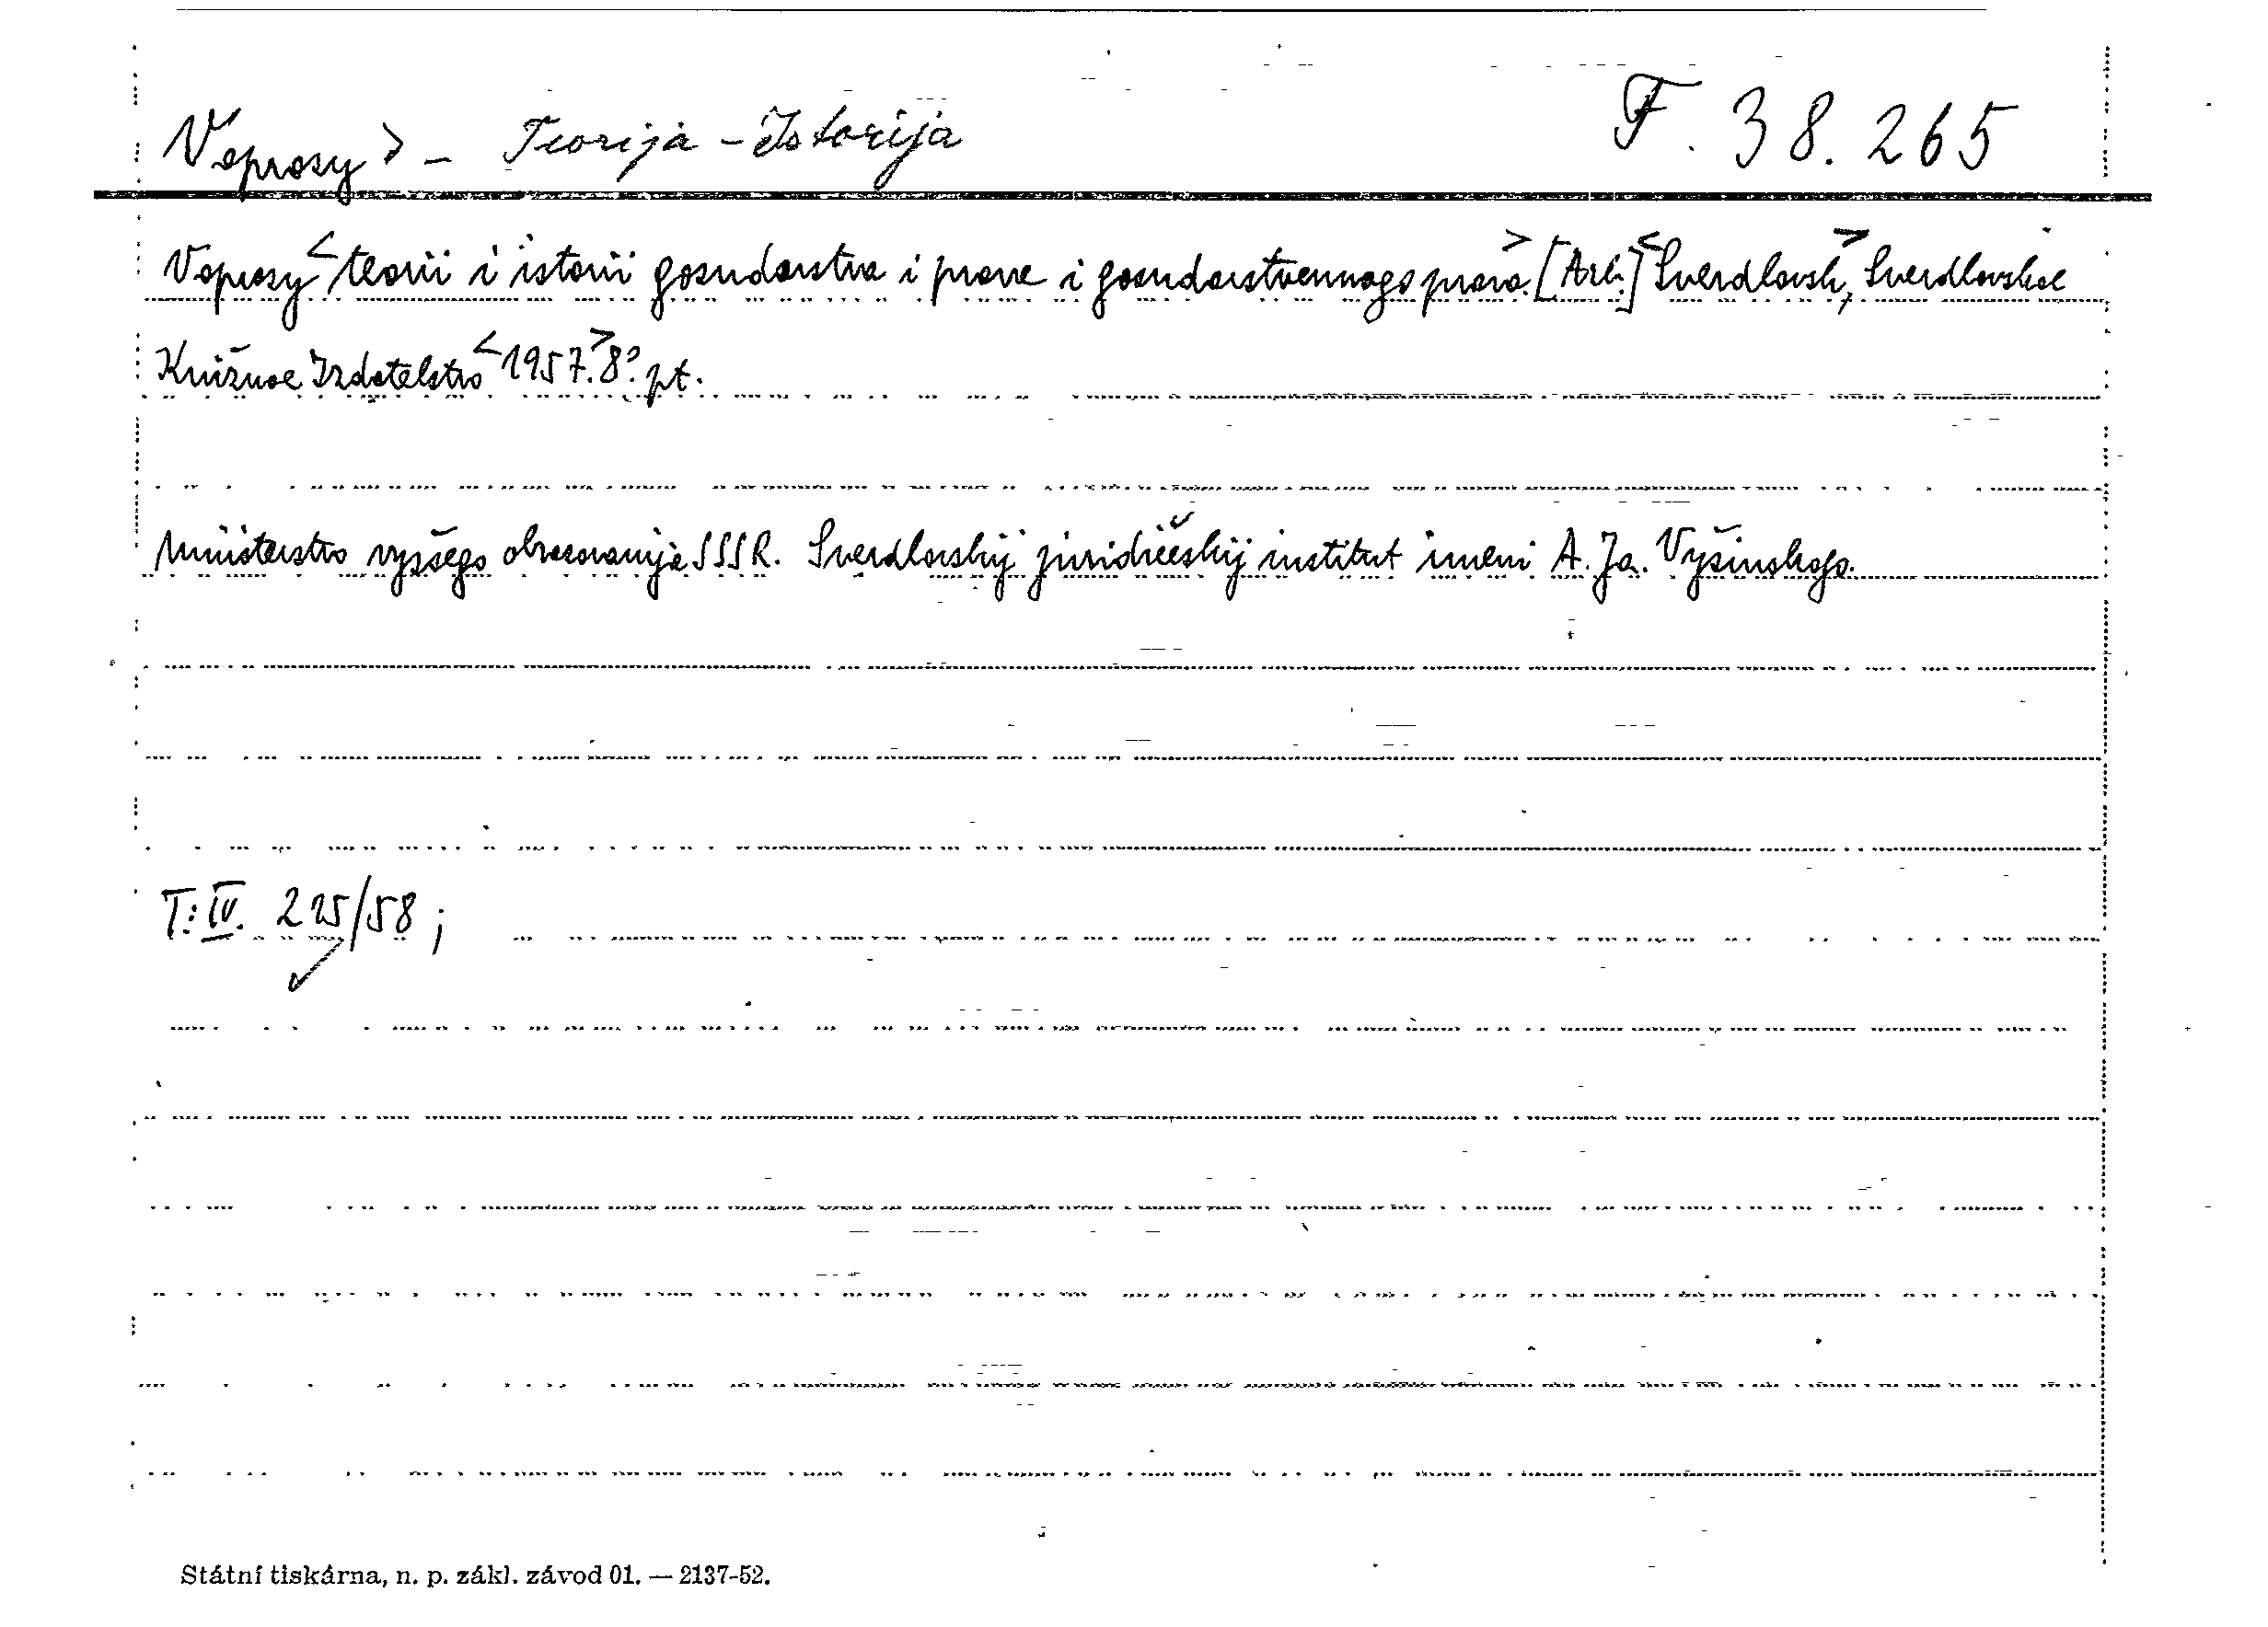 Voprosy > – Teorija – Istorija F. 38.265
Voprosy < teorii i istorii gosudarstva i prava i gosudarstvennogo prava. > [Azb.] < Sverdlovsk, > Sverdlovskoe
Knižnoe Izdatelstvo < 1957. > 8° pt.
Ministerstvo vysšego obrazovanija SSSR. Sverdlovskij juridičeskij institut imeni A. Ja. Vyšinskogo.
T: IV. 225/58;
✓
Státní tiskárna, n. p. zákl. závod 01. — 2137-52.